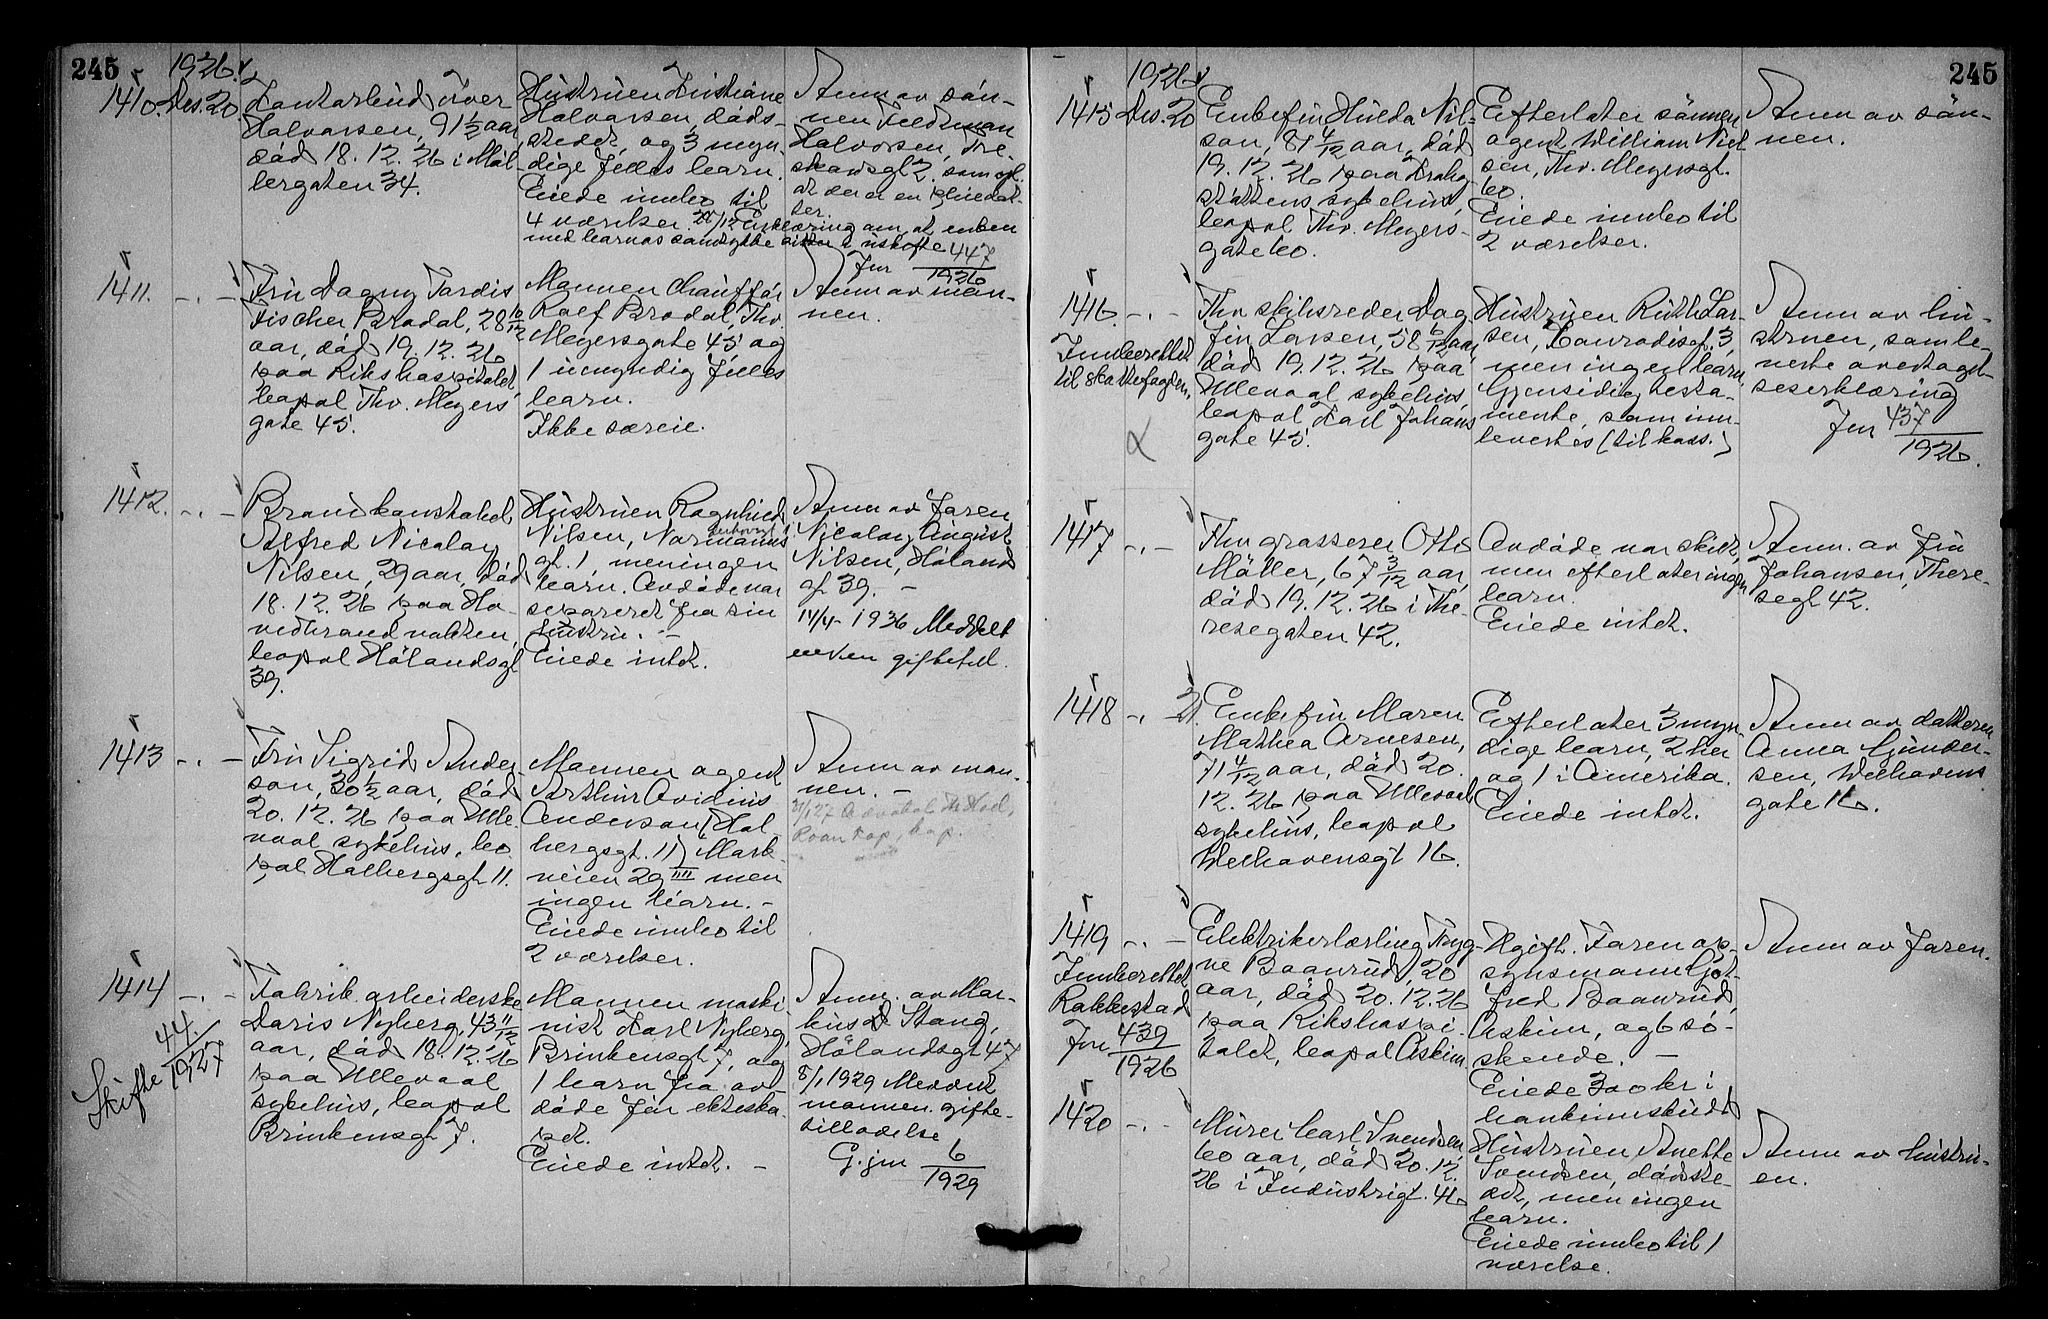 245
1926.
1410. Des. 20
Kontorbud Iver
Halvorsen, 91 1/2 aar
död 18.12.26 i Möl-
lergaten 34.
Hustruen Kristiane
Halvorsen, döds-
stedet, og 3 myn-
dige fælles barn.
Eiede innbo til
4 værelser. 28/12 Erklæring om at enken
med barnas samtykke sitter i uskifte
Anm av sön-
nen Feldtman
Halvorsen,
skansgt 2, som opl.
at der er en
ter.
Jnr 447/1926
1411. -.-
Fru Dagny Tordis
Fischer Brodal, 28 10/12
aar, död 19.12.26
paa Rikshospitalet,
bopæl Thv. Meyers
gate 45.
Mannen chaufför
Rolf Brodal, Thv.
Meyersgate 45 og
1 umyndig fælles
barn.
Ikke særeie.
Anm av man-
nen.
1412. -.-
Brandkonstabel
Alfred Nicolay
Nilsen, 29 aar, död
18.12.26 paa Ho-
vedbrandvakten,
bopæl Hölandsgt
39.
Hustruen Ragnhild
Nilsen, Normanns
gt. 1, men ingen
barn. Avdöde var
separeret fra sin
hustru. -
Eiede intet.
Anm av faren
Nicolay August
Nilsen, Höland
gt 39. -
14/4-1936 Meddelt
enken giftetill.
1413 -.-
Fru Sigrid Ander-
son, 30 1/2 aar, död
20.12.26 paa Ulle-
vaal sykehus, bo-
pæl Holbergsgt 11.
Mannen agent
Arthur Ovidius
Anderson (Hol-
bergsgt. 11) Mark-
veien 29 IIII men
ingen barn. -
Eiede innbo til
2 værelser.
Anm av man-
nen. -
1414 -.-
Skifte 44./1927
Fabrik arbeiderske
Doris Nyberg, 43 11/12
aar, död 18.12.26
paa Ullevaal
sykehus, bopæl
Brinkensgt 7.
Mannen maski-
nist Karl Nyberg,
Brinkensgt 7, og
1 barn fra av-
döde för ekteska-
pet.
Eiede intet. -
Anm. av Mar-
kus Stang,
Hölandsgt 47
8/1 1929 Meddelt
mannen gifte-
tilladelse
G.jnr 6/1929
245
1926
1415 Des. 20
Enkefru Hulda Nil-
son, 81 4/12 aar, död
19.12.26 paa Krohg-
støttens sykehus,
bopæl Thv. Meyers-
gate 60.
Efterlater sönnen
agent William Niel-
sen, Thv. Meyersgt.
60.
Eiede innbo til
2 værelser.
Anm av sön-
nen.
1416. -.-
Innberettet
til skattefogden.
Fhv skibsreder Dag-
fin Larsen, 58 6/12 aar,
död 19.12.26 paa
Ullevaal sykehus,
bopæl Karl Johans
gate 45.
Hustruen Ruth Lar-
sen, Conradisgt. 3,
men ingen barn.
Gjensidig testa-
mente, som inn-
levertes (til kass.)
Anm av hu-
struen, som le-
verte overtagel-
seserklæring
Jnr 437/1926.
1417 -.-
Fhv grosserer Otto
Möller, 67 3/12 aar,
död 19.12.26 i The-
resegaten 42.
Avdöde var skilt,
men efterlater ingen
barn.
Eiede intet.
Anm. av fru
Johansen, There-
segt 42.
1418 -.- 21.
Enkefru Maren
Mathea Arnesen,
71 4/12 aar, död 20.
12.26 paa Ullevaal
sykehus, bopæl
Welhavensgt 16.
Efterlater 3 myn-
dige barn, 2 her
og 1 i Amerika.
Eiede intet.
Anm av datteren
Anna Gunder-
sen, Welhavens
gate 16.
1419 -.-
Innberettet
Rakkestad
Jnr 439/1926
Elektrikerlærling Tryg-
ve Baanrud, 20
aar, död 20.12.26
paa Rikshospi-
talet, bopæl Askim
Ugift. Faren op-
synsmann Got-
fred Baanrud,
Askim, og 6 sö-
skende. -
Eiede 300 kr i
bankinnskudd
Anm av faren.
1420 -.-
Murer Carl Svendsen,
60 aar, död 20.12.
26 i Industrigt. 46
Hustruen Anette
Svendsen, dödsste-
det, men ingen
barn.
Eiede innbo til 1
værelse.
Anm av hustru-
en.